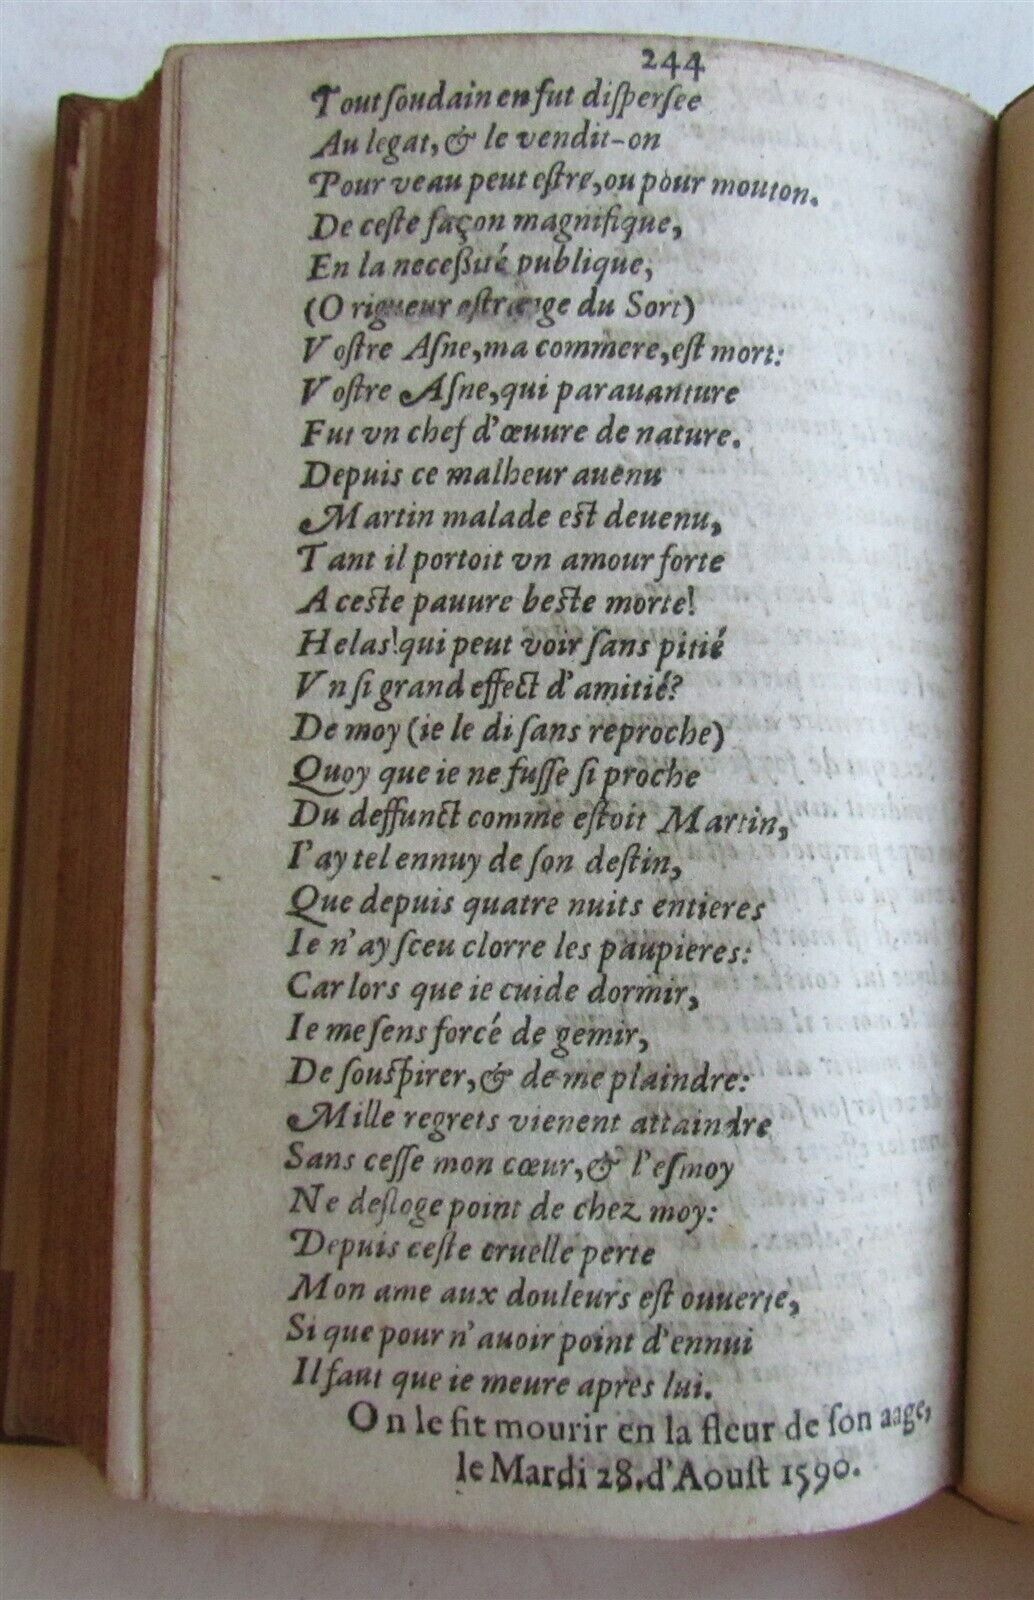 244
Tout ſoudain en fut diſperſee
Au legat, & le vendit-on
Pour veau peut eſtre, ou pour mouton.
De ceſte façon magnifique,
En la neceßité publique,
(O rigueur eſtrange du Sort)
Voſtre Aſne, ma commere, eſt mort:
Voſtre Aſne, qui parauanture
Fut vn chef d'œuure de nature.
Depuis ce malheur auenu
Martin malade est deuenu,
Tant il portoit vn amour forte
A ceste pauure beste morte!
Helas! qui peut voir ſans pitié
Vn ſi grand effect d'amitié?
De moy (ie le di ſans reproche)
Quoy que ie ne fuſſe ſi proche
Du deffunct comme eſtoit Martin,
I'ay tel ennuy de ſon deſtin,
Que depuis quatre nuits entieres
Ie n'ay ſceu clorre les paupieres:
Car lors que ie cuide dormir,
Ie me ſens forcé de gemir,
De ſouſpirer, & de me plaindre:
Mille regrets vienent attaindre
Sans ceſſe mon cœur, & l'eſmoy
Ne deſloge point de chez moy:
Depuis ceſte cruelle perte
Mon ame aux douleurs est ouuerte,
Si que pour n'auoir point d'ennui
Il faut que ie meure apres lui.
On le fit mourir en la fleur de ſon aage,
le Mardi 28. d'Aouſt 1590.